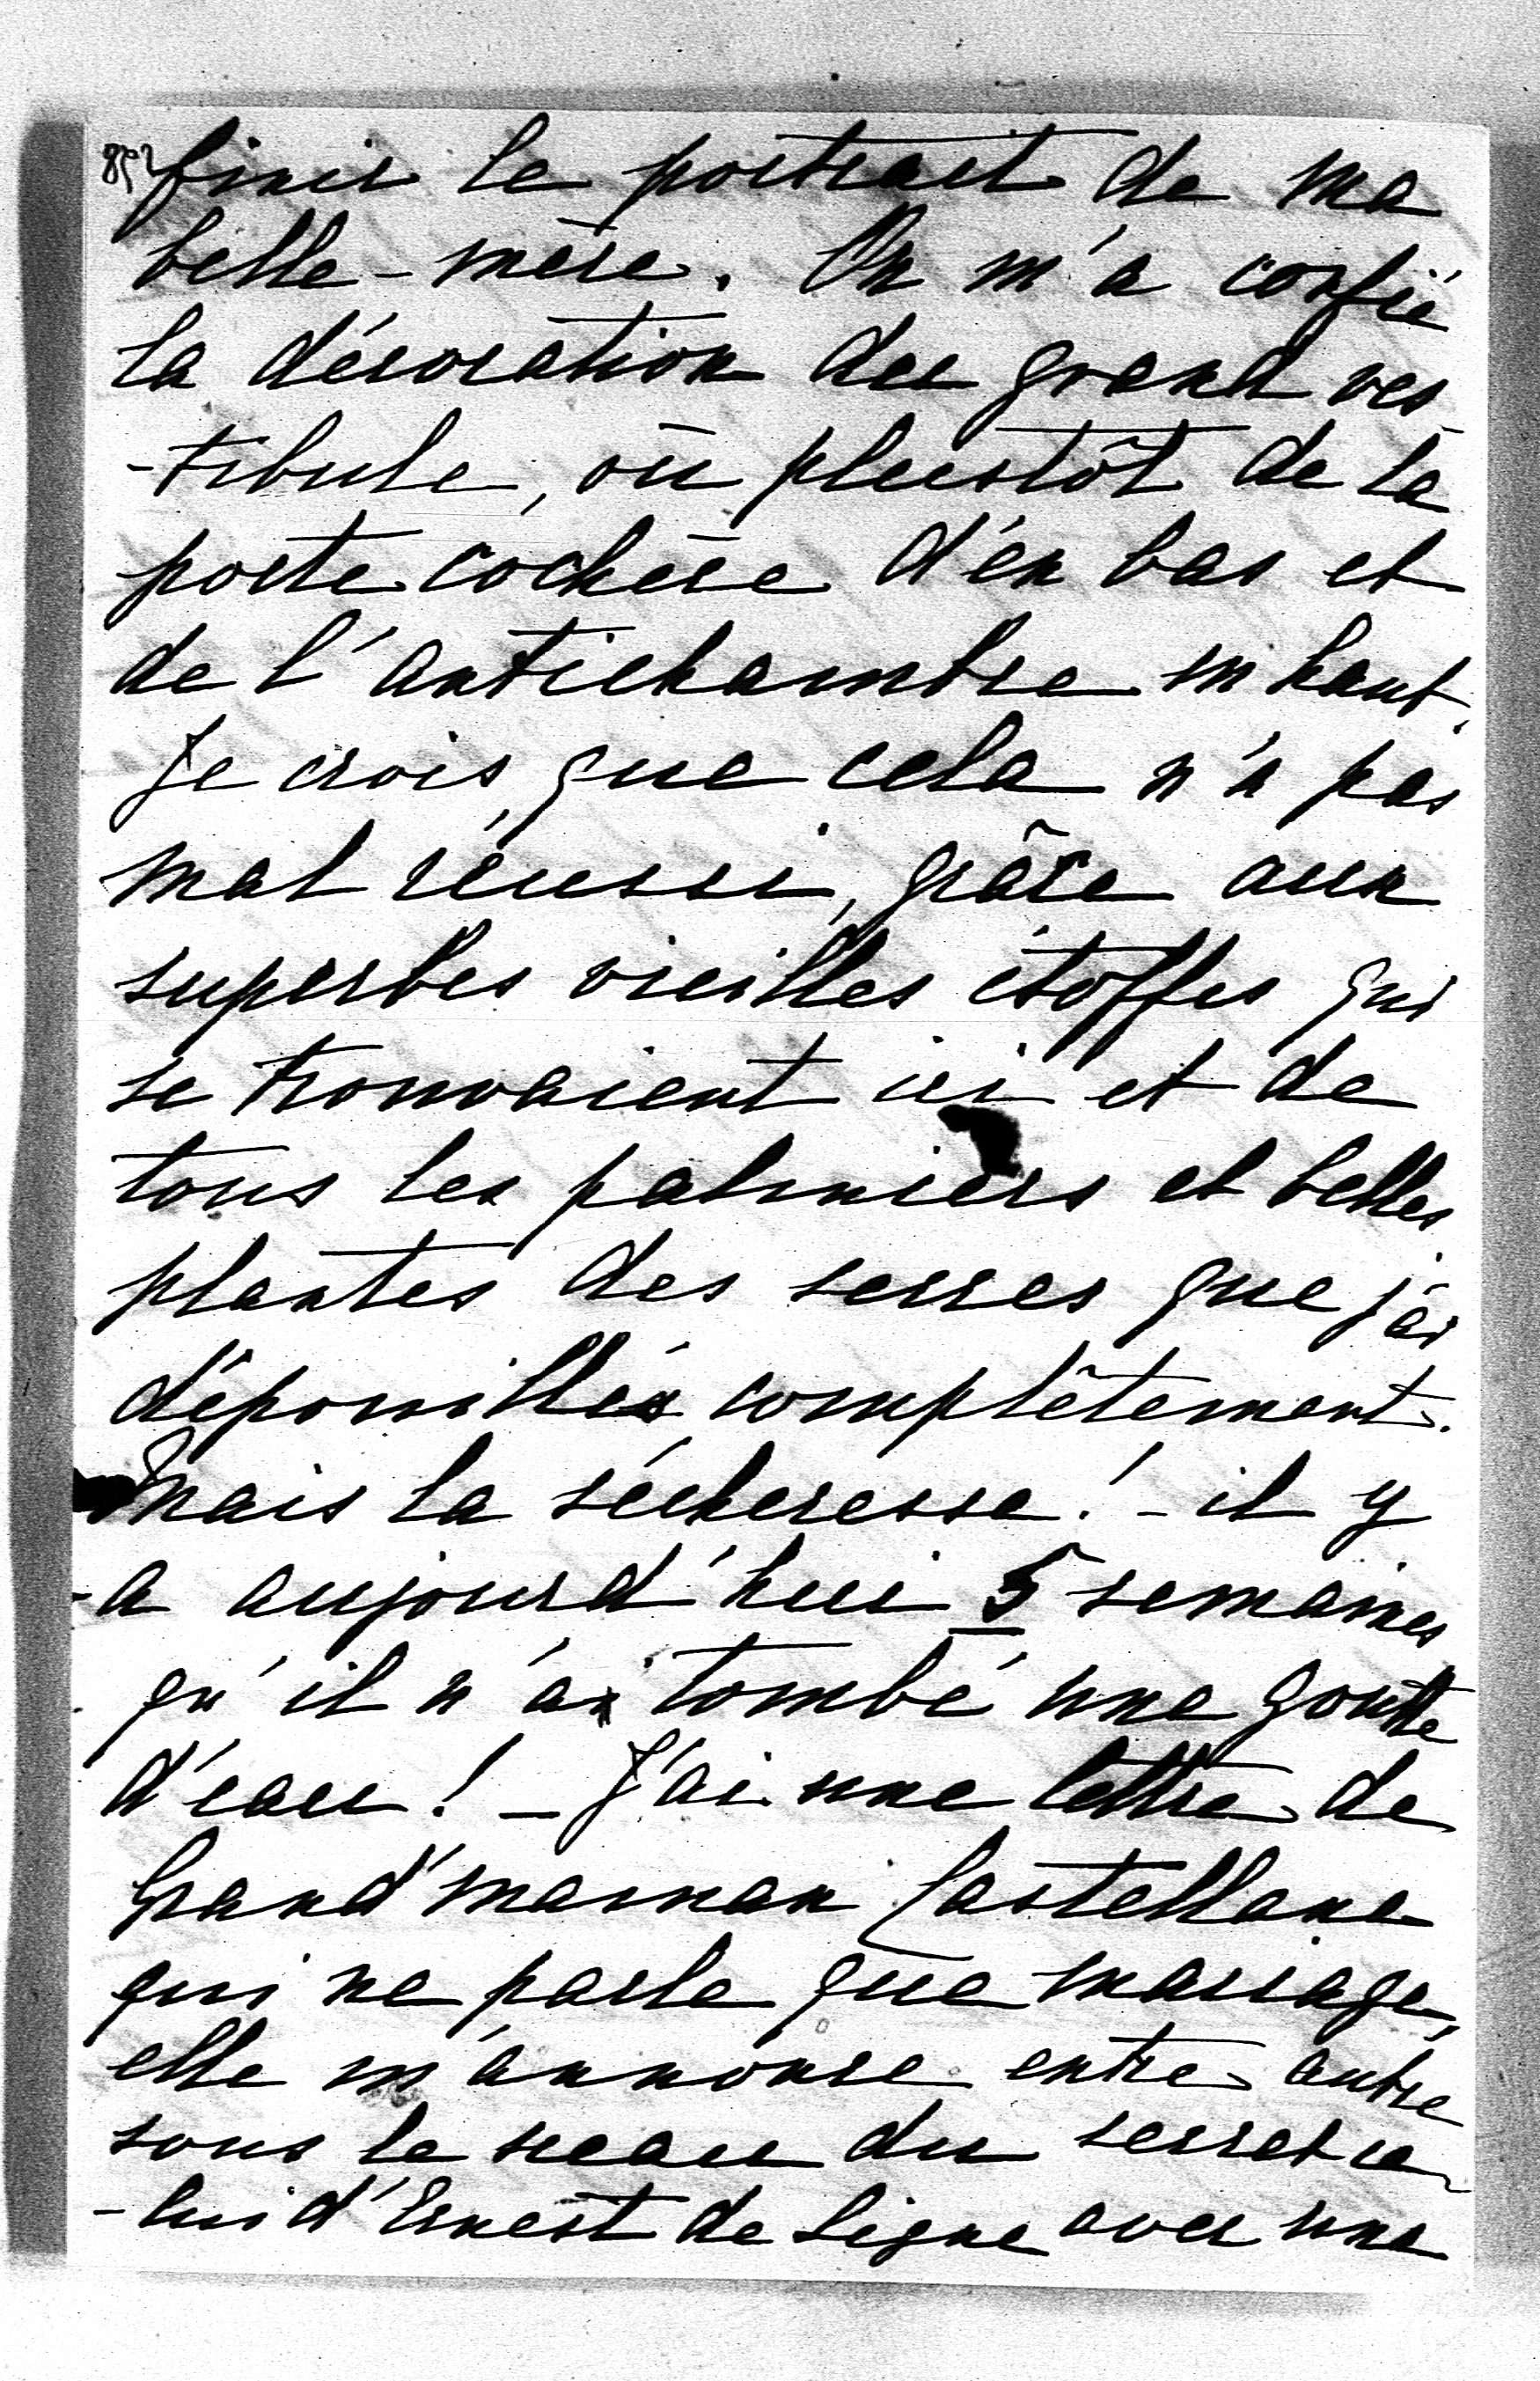 finir le portrait de ma
belle-mère. On m'a confié
la décoration du grand ves
-tibule, où plustôt de la
porte cochère d'en bas et
de l'antichambre en haut.
Je crois que cela n'a pas
mal réussi, grâce aux
superbes vieilles étoffes qui
se trouvaient ici et de
tous les palmiers et belles
plantes des serres que j'ai
dépouillés complêtement.
Mais la sécheresse! - il y
a aujourd'hui 5 semaines
qu'il n'a tombé une goutte
d'eau! - J'ai une lettre de
Grand'maman Castellane
qui ne parle que mariage,
elle m'annonce entre autre
sous le sceau du secret ce
-lui d'Ernest de Ligne avec une